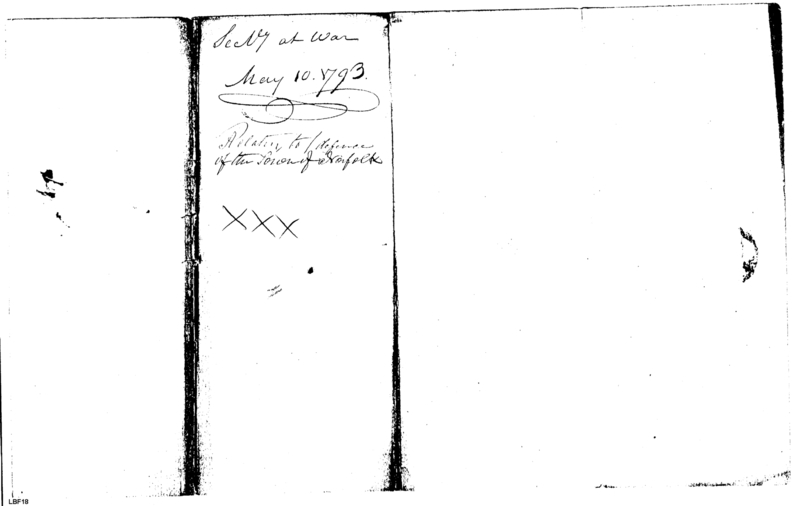 Secry at War
May 10. 1793.
Relating to / defence
of the Town of Norfolk
XXX
LBF18